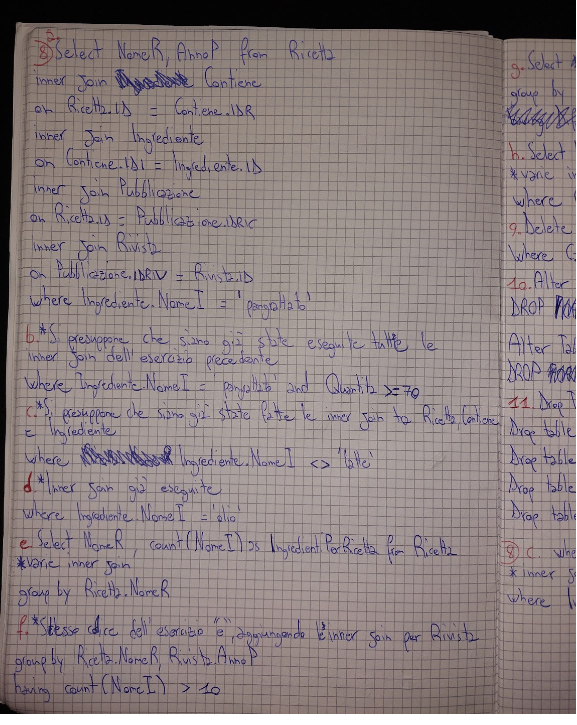 8)a Select NomeR, AnnoP from Ricetta
inner join Contiene
on Ricetta.ID = Contiene.IDR
inner join Ingrediente
on Contiene.IDI = Ingrediente.ID
inner join Pubblicazione
on Ricetta.ID = Pubblicazione.IDRIC
inner join Rivista
on Pubblicazione.IDRIV = Rivista.ID
where Ingrediente.NomeI = 'pangrattato'
b. *Si presuppone che siano già state eseguite tutte le
inner join dell'esercizio precedente
where Ingrediente.NomeI = 'pangrattato' and Quantità >= 70
c. *Si presuppone che siano già state fatte le inner join tra Ricetta, Contiene
e Ingrediente
where Ingrediente.NomeI <> 'latte'
d. *Inner join già eseguite
where Ingrediente.NomeI = 'olio'
e. Select NomeR, count(NomeI) as IngredientiPerRicetta from Ricetta
*varie inner join
group by Ricetta.NomeR
f. *Stesso codice dell'esercizio "e", aggiungendo l'inner join per Rivista
group by Ricetta.NomeR, Rivista.AnnoP
having count(NomeI) > 10
g. Select
group by
h. Select
*varie in
where
9. Delete
Where
10. Alter
DROP
Alter Tab
DROP
11. Drop T
Drop table
Drop table
Drop table
Drop table
8) c. whe
*inner j
where